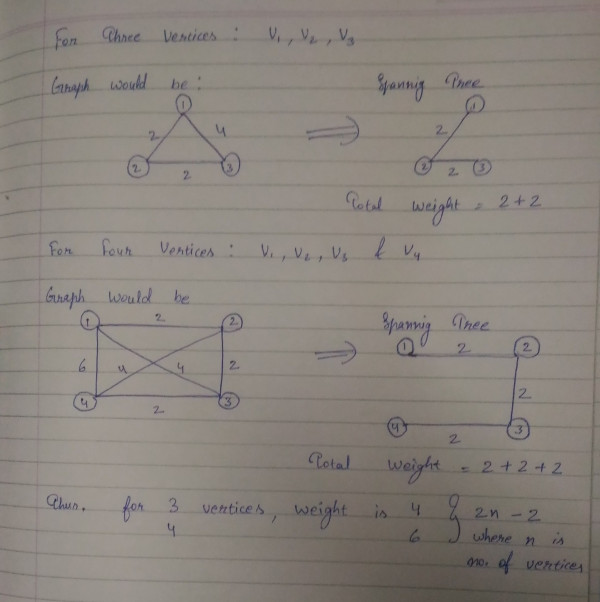 For Three Vertices : V1, V2, V3
Graph would be :
1
2 4
2 3
2
⇒
Spannig Tree
1
2
2 3
2
Total weight = 2+2
For Four Vertices : V1, V2, V3 & V4
Graph would be
1 2 2
6 4 4 2
4 3
2
⇒
Spannig Tree
1 2 2
2
4 3
2
Total weight = 2 + 2 + 2
Thus. for 3 vertices, weight is 4 } 2n - 2
4 6 where n is
no. of vertices